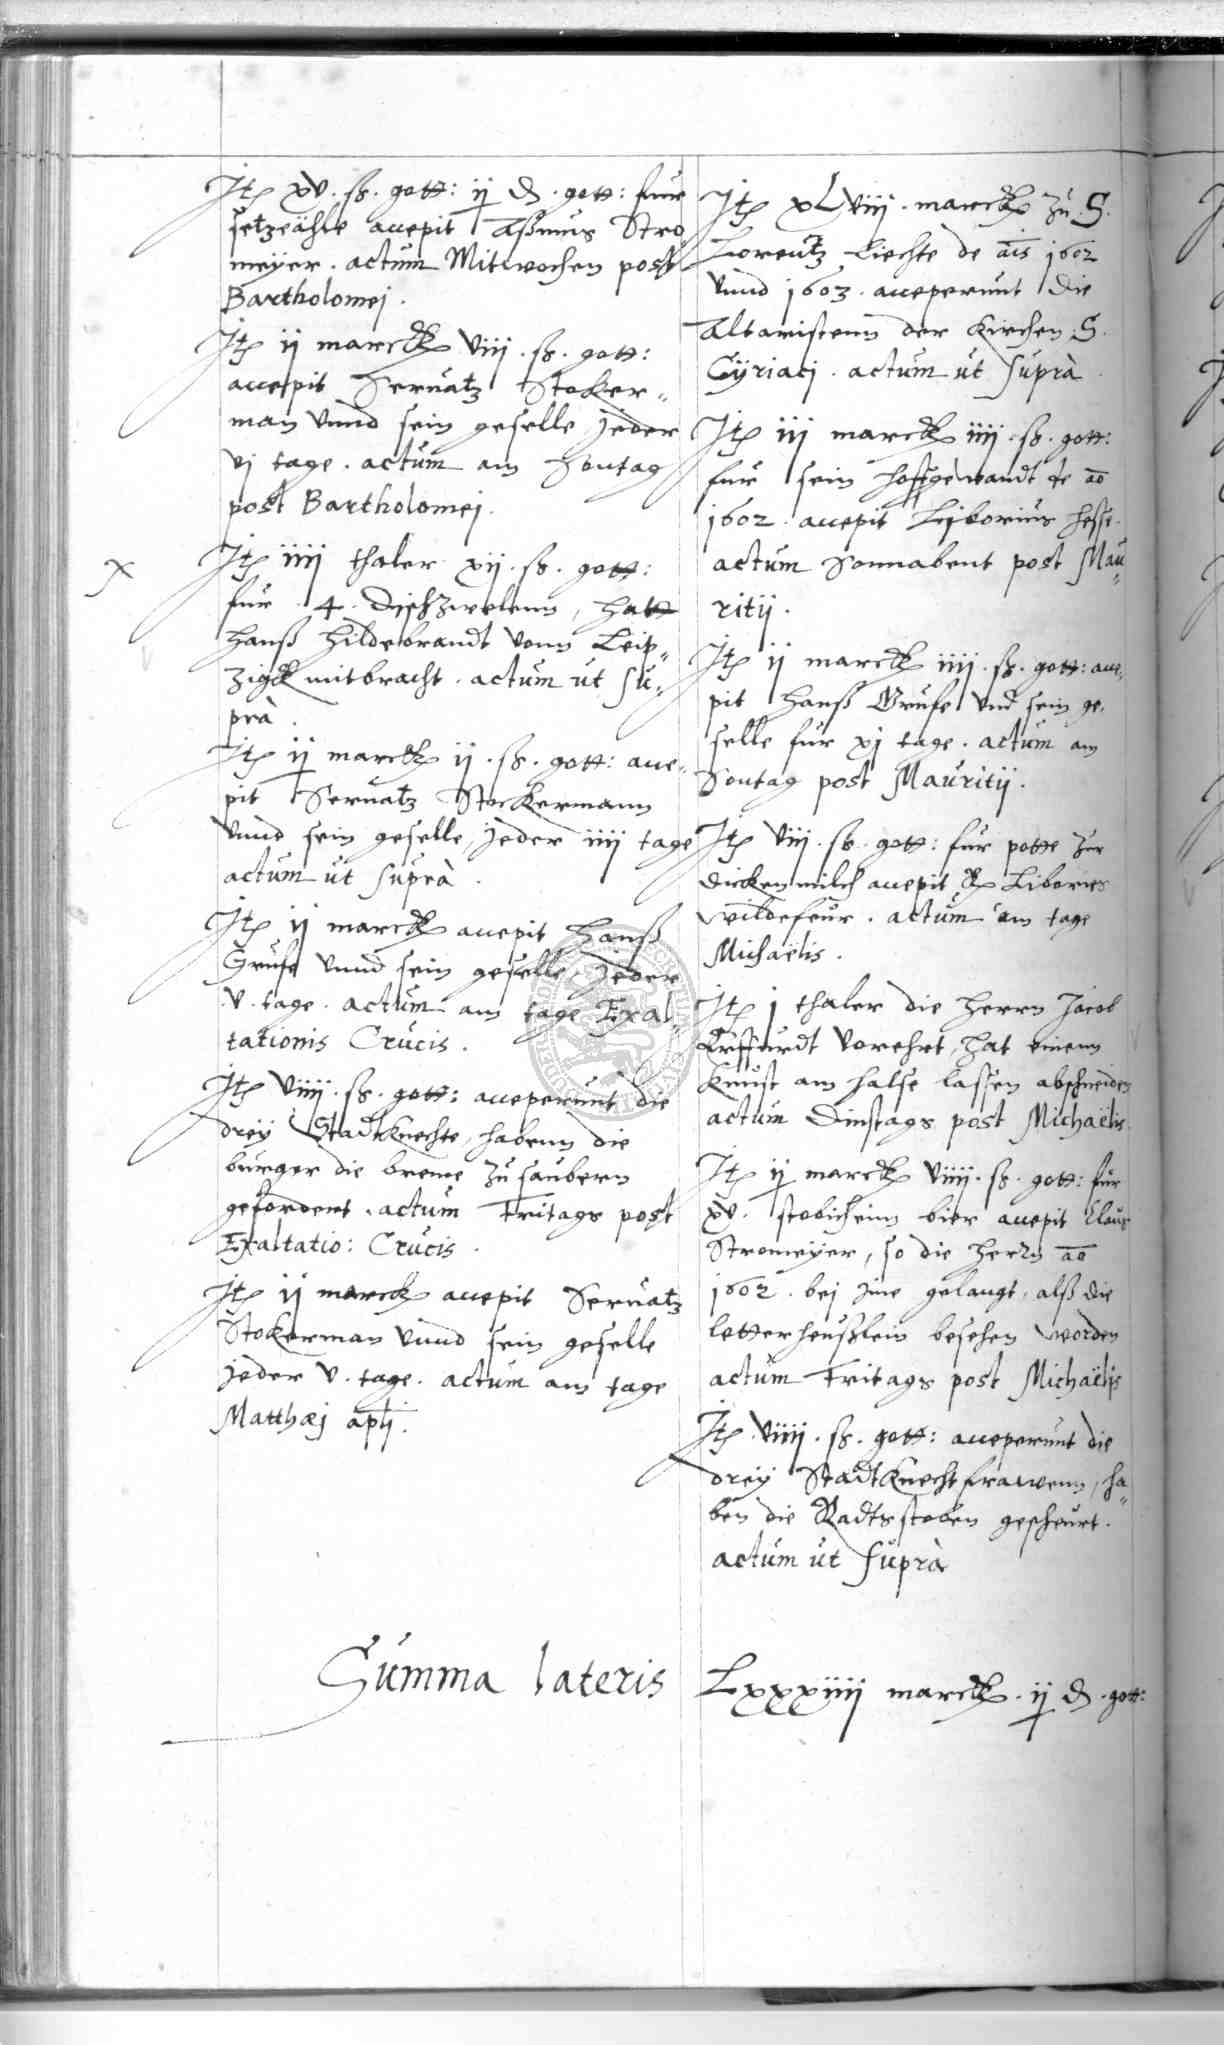 Itē xv. ß. gott: ij ₰. gott: fur
setzeähle accepit Aßmus Stro
meÿer. actum Mitwochen post
Bartholomej.
Itē ij marck viij. ß. gott:
accepit Seruatz Stoker„
man vnnd sein geselle jeder
vj tage. actum am Sontag
post Bartholomej.
x
Itē iiij thaler xij. ß. gott:
fur 4. Dischzwelenn, hatt
Hanß Hildebrandt vonn Leip„
zigk mitbracht. actum ut su„
prà.
Itē ij marck ij. ß. gott: acce„
pit Seruatz Stockermann
vnnd sein geselle, jeder iiij tage
actum ut suprà.
Itē ij marck accepit Hanß
Grufe vnnd sein geselle, jeder
v. tage. actum am tage Exal„
tationis Crucis.
Itē viiij. ß. gott: acceperunt die
dreÿ Stadtknechte, habenn die
burger die breme zu saubern
gefordert. actum Fritags post
Exaltatio: Crucis.
Itē ij marck accepit Seruatz
Stokerman vnnd sein geselle
jeder v. tage. actum am tage
Matthæj apli.
Itē xLviij. marck zu S.
Lorentz Liechte de ais 1602
vnnd 1603. acceperunt die
Altaristenn der Kirchen S.
Cÿriacj. actum ut suprà.
Itē iij marck iiij. ß. gott:
fur sein hoffgewandt de ao
1602. accepit Liborius Hesse.
actum Sonnabent post Mau„
ritij.
Itē ij marck iiij. ß. gott: acce„
pit Hanß Grufe vnd sein ge„
selle fur xj tage. actum am
Sontag post Mauritij.
Itē viij. ß. gott: fur potte zur
dicken milch accepit Liborius
Wildefeur. actum am tage
Michaëlis.
Itē j thaler die Herrn Jacob
Erffurdt vorehrt, hat einenn
Knust am halse lassen abschneiden
actum Dinstags post Michaëlis.
Itē ij marck viiij. ß. gott: für
xv. stobichenn bier accepit Claus
Stromeÿer, so die Herrn ao
1602. bej jme gelangt, alß die
letterheußlein besehen worden
actum Fritags post Michaëlis
Itē viiij. ß. gott: acceperunt die
dreÿ Stadtknecht frawenn, ha„
ben die Radtsstoben gescheurt.
actum ut suprà
Summa lateris Lxxxiiij marck. ij ₰. gott: